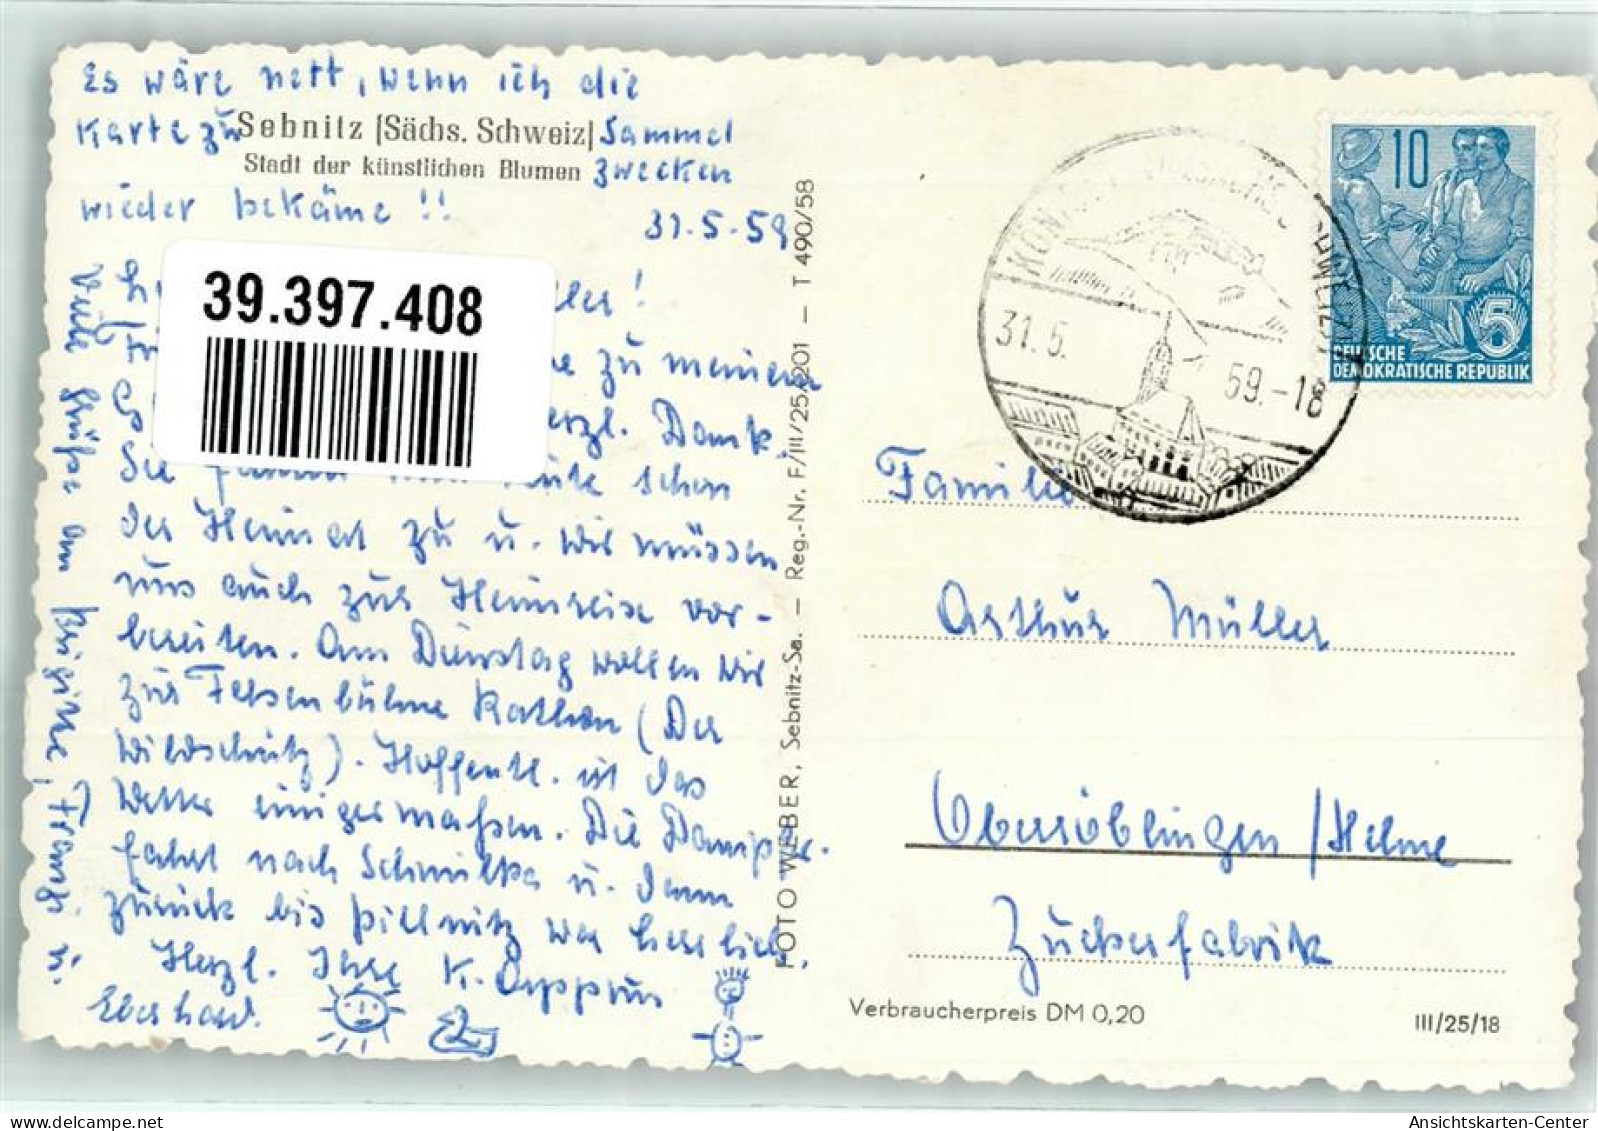 Es wäre nett, wenn ich die
Karte zu Sammel
zwecken
wieder bekäme !!
Sebnitz (Sächs. Schweiz)
Stadt der künstlichen Blumen
31.5.59
39.397.408
zu meinem
herzl. Dank.
Sie fahren nun heute schon
der Heimat zu u. wir müssen
uns auch zur Heimreise vor-
bereiten. Am Dienstag wollen wir
zur Felsenbühne Rathen (Der
Wildschütz). Hoffentl. ist das
Wetter einigermaßen. Die Dampfer-
fahrt nach Schmilka u. dann
zurück bis Pillnitz war herrlich.
Herzl. Ihre K.
Eberhard.
Viele Grüße an Brigitte, Franz u.
FOTO WEBER, Sebnitz-Sa. — Reg.-Nr. F/III/25/201 — T 490/58
SCHWEIZ
31.5. 59.-18
10
5
DEUTSCHE
DEMOKRATISCHE REPUBLIK
Familie
Arthur Müller
Oberröblingen/Helme
Zuckerfabrik
Verbraucherpreis DM 0,20
III/25/18
Ansichtskarten-Center